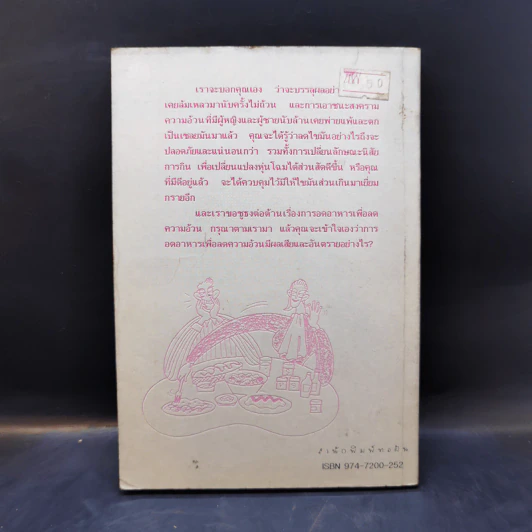 เราจะบอกคุณเอง ว่าจะบรรลุผลอย่าง
เคยล้มเหลวมานับครั้งไม่ถ้วน และการเอาชนะสงคราม
ความอ้วนที่มีผู้หญิงและผู้ชายนับล้านเคยพ่ายแพ้และตก
เป็นเชลยมันมาแล้ว คุณจะได้รู้ว่าลดไขมันอย่างไรถึงจะ
ปลอดภัยและแน่นอนกว่า รวมทั้งการเปลี่ยนลักษณะนิสัย
การกิน เพื่อเปลี่ยนแปลงหุ่นโฉมได้ส่วนสัดดีขึ้น หรือคุณ
ที่มีดีอยู่แล้ว จะได้ควบคุมไว้มิให้ไขมันส่วนเกินมาเยี่ยม
กรายอีก
และเราขอชูธงต่อต้านเรื่องการอดอาหารเพื่อลด
ความอ้วน กรุณาตามเรามา แล้วคุณจะเข้าใจเองว่าการ
อดอาหารเพื่อลดความอ้วนมีผลเสียและอันตรายอย่างไร?
ISBN 974-7200-252